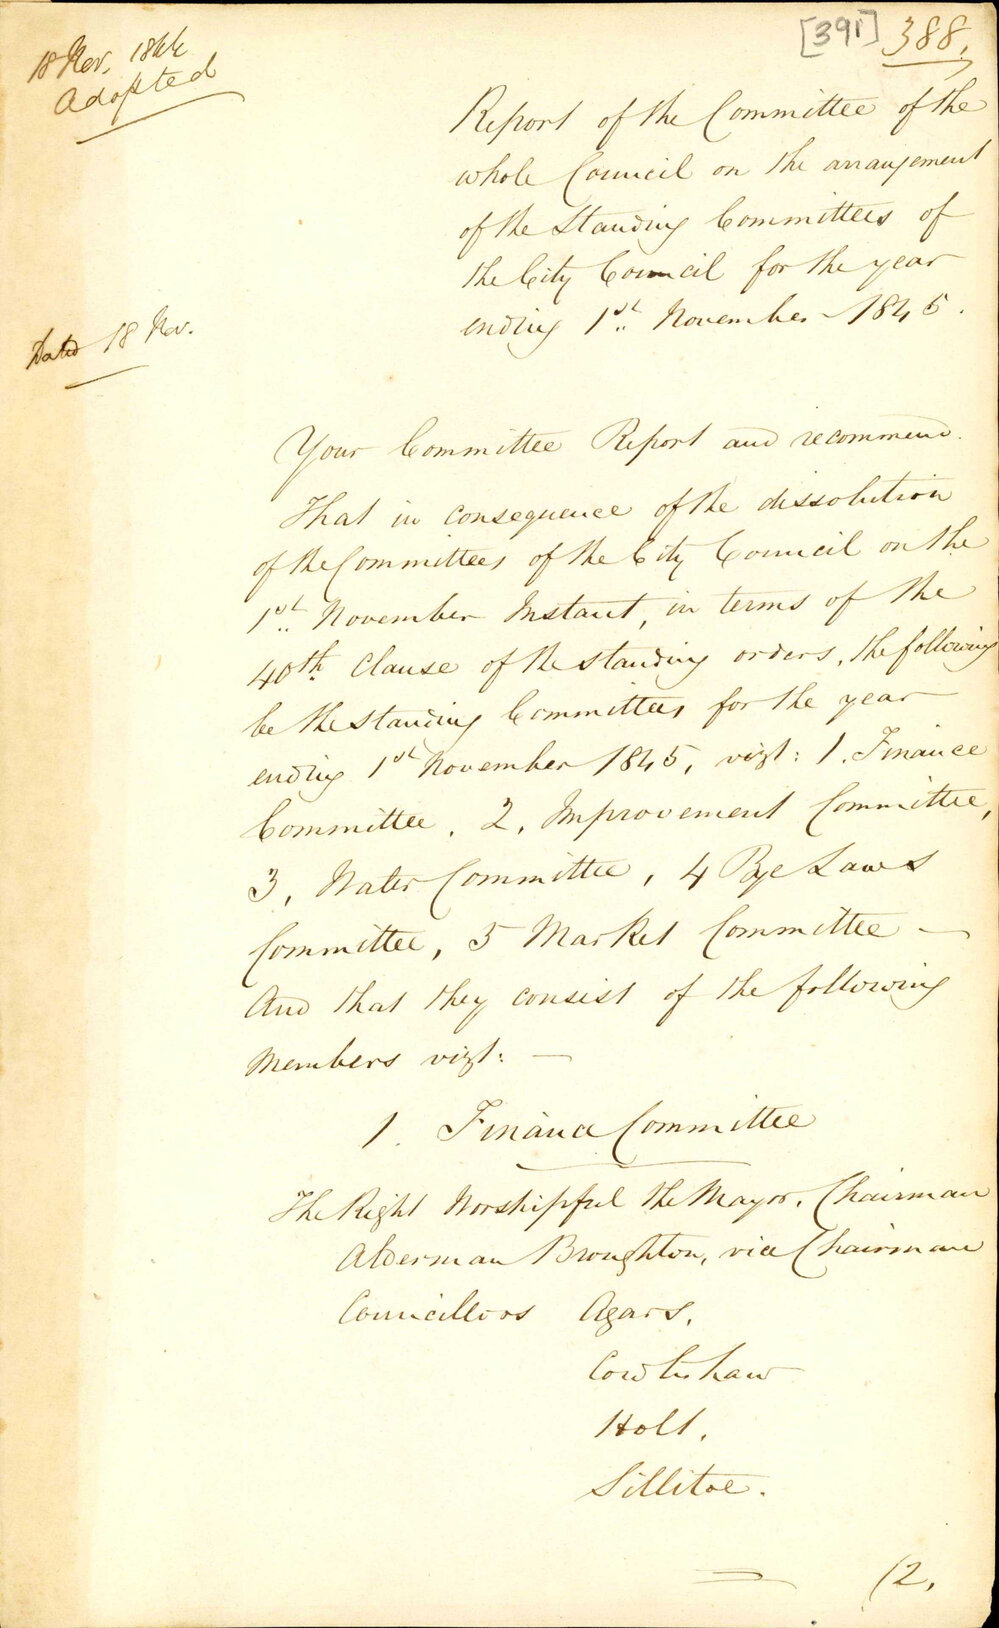 [391] 388.
18 Nov. 1844
Adopted
Report of the Committee of the
whole Council on the arrangement
of the Standing Committees of
the City Council for the year
ending 1st November 1845.
Dated 18 Nov.
Your Committee Report and recommend.
That in consequence of the dissolution
of the Committees of the City Council on the
1st November Instant, in terms of the
40th Clause of the standing orders, the following
be the standing Committees for the year
ending 1st November 1845, vizt: 1. Finance
Committee, 2, Improvement Committee,
3, Water Committee, 4 Bye Laws
Committee, 5 Market Committee —
And that they consist of the following
Members vizt: —
1. Finance Committee
The Right Worshipful the Mayor, Chairman
Alderman Broughton, vice Chairman
Councillors Agars,
Cowlishaw
Holt,
Sillitoe.
(2,